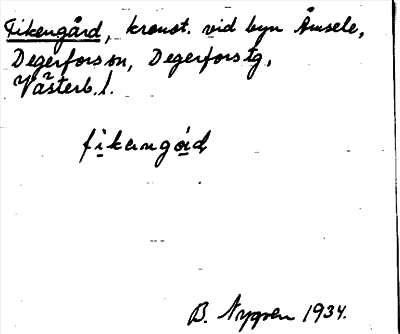 Fikengård, kronot. vid byn Åmsele,
Degerfors sn, Degerfors tg,
Västerb. l.
fikangård
B. Nygren 1934.